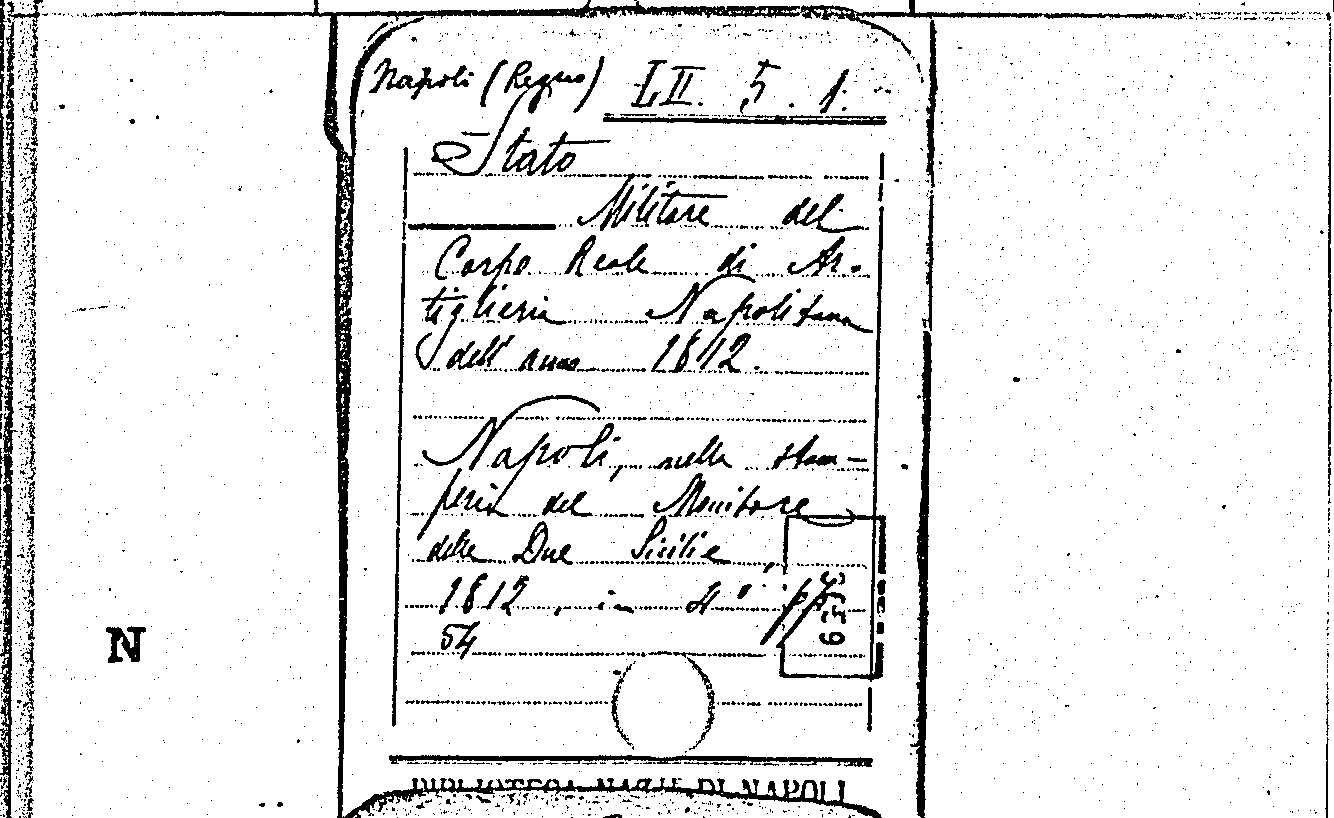 Napoli (Regno) LII. 5. 1.
Stato
Militare del
Corpo Reale di Ar-
tiglieria Napolitana
dell' anno 1812.
Napoli, nella stam-
peria del Monitore
delle Due Sicilie,
1812, in 4° pp.
54
N
BIBLIOTECA NAZ. DI NAPOLI